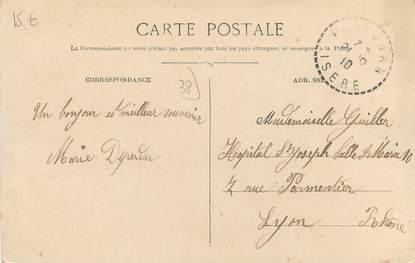 15 €
CARTE POSTALE
La Correspondance au recto n'était pas acceptée par tous les pays étrangers, se renseigner à la Poste
CORRESPONDANCE
38
ISERE
10
Un bonjour et meilleur souvenir
Marie
Mademoiselle Guiller
Hopital St Joseph Salle Ste Marie 10
rue Parmentier
Lyon Rhône